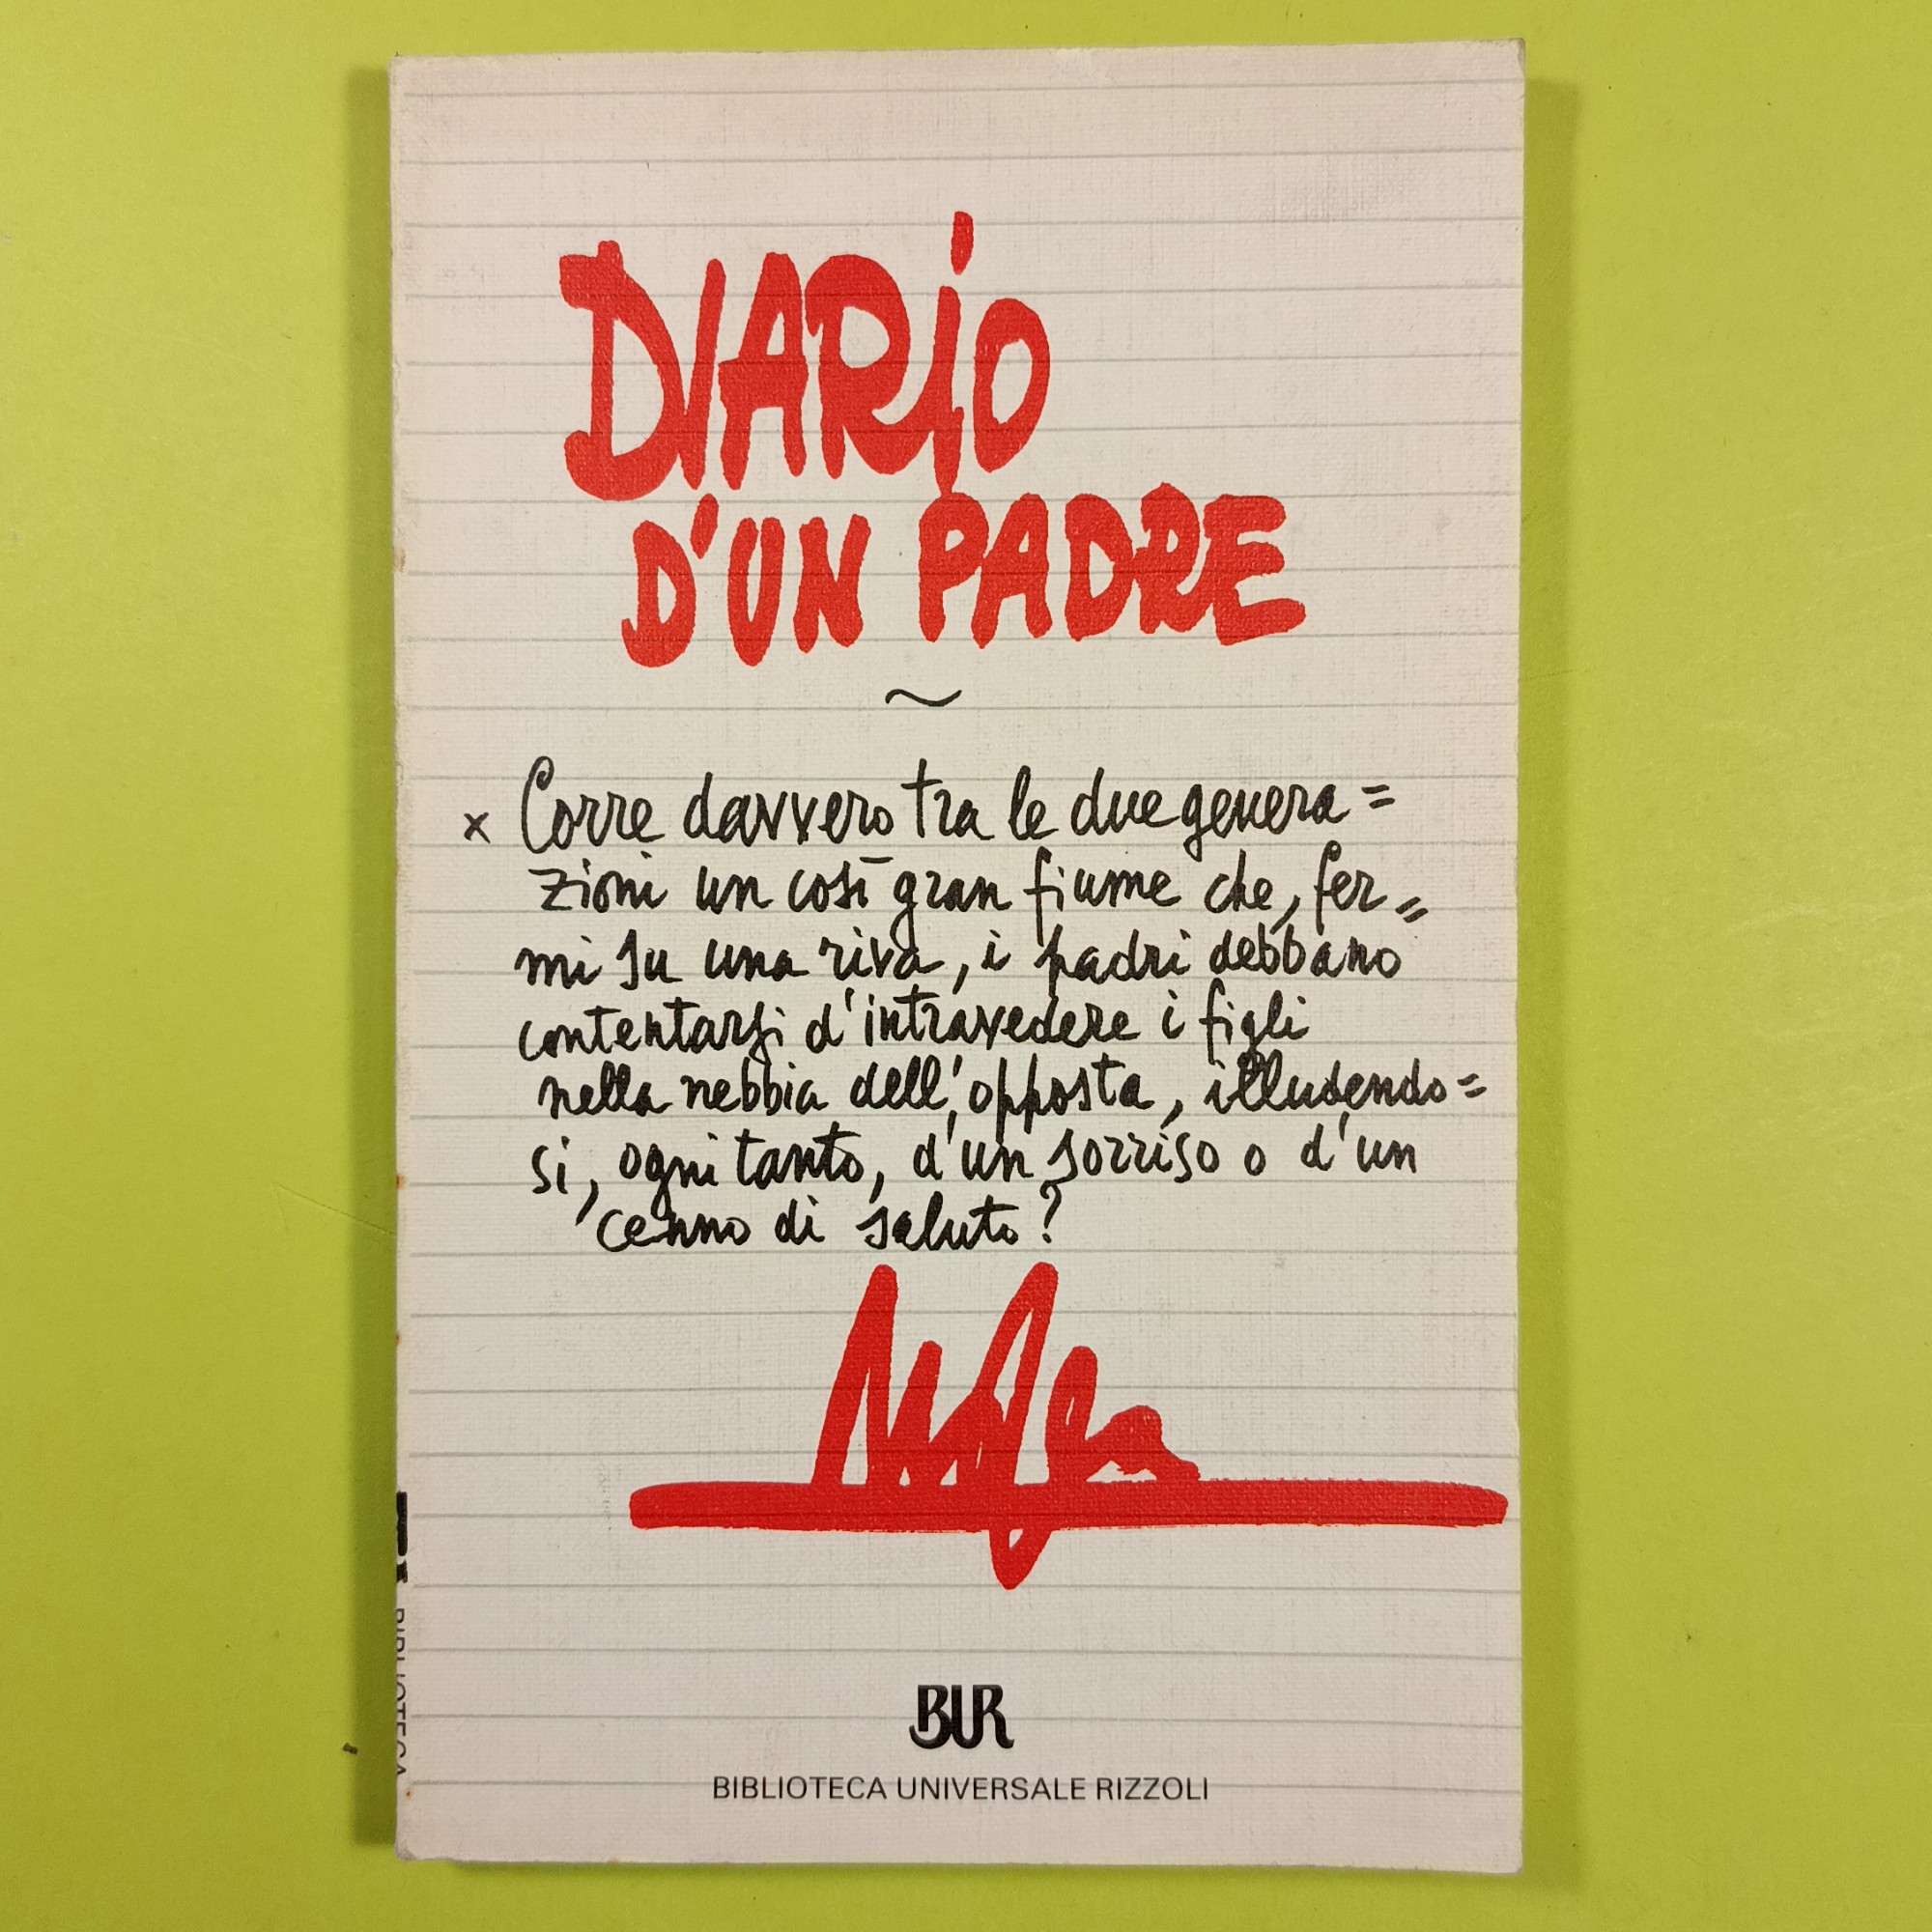 DIARIO
D'UN PADRE
~
× Corre davvero tra le due genera=
zioni un così gran fiume che, fer=
mi su una riva, i padri debbano
contentarsi d'intravedere i figli
nella nebbia dell'opposta, illudendo=
si, ogni tanto, d'un sorriso o d'un
cenno di saluto?
BUR
BIBLIOTECA UNIVERSALE RIZZOLI
BIBLIOTECA